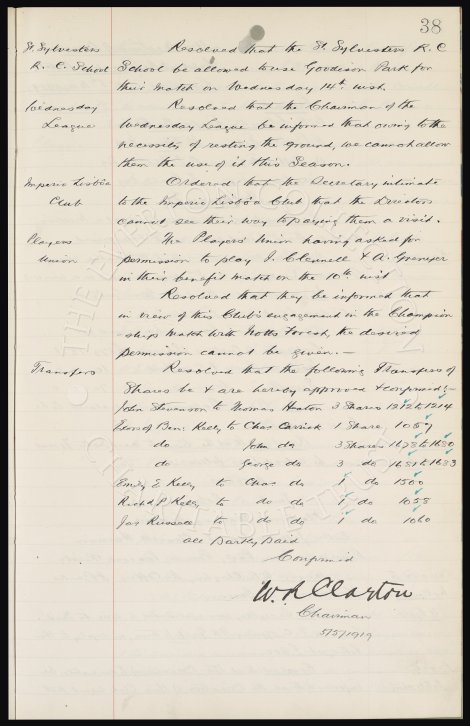 38
St. Sylvesters Resolved that the St. Sylvesters R. C
R. C. School School be allowed to use Goodison Park for
their match on Wednesday 14th inst.
Wednesday Resolved that the Chairman of the
League Wednesday League be informed that owing to the
necessity of resting the ground, we cannot allow
them the use of it this Season.
Imperio Lisbôa Ordered that the Secretary intimate
Club to the Imperio Lisbôa Club that the Directors
cannot see their way to paying them a visit.
Players The Players' Union having asked for
Union permission to play J. Clennell & A. Grenyer
in their benefit match on the 10th inst
Resolved that they be informed that
in view of this Club's engagement in the Champion
-ships Match with Notts Forest, the desired
permission cannot be given.—
Transfers Resolved that the following Transfers of
Shares be & are hereby approved & confirmed:-
John Stevenson to Thomas Heaton 3 Shares 1212 to 1214
Exors of Benj. Kelly to Chas Carrick 1 Share, 1059
do John do 3 Shares 1678 to 1680
do George do 3 do 1681 to 1683
Emily E Kelly to Chas do 1 do 1500
Richd P. Kelly to do do 1 do 1058
Jas Russell to do do 1 do 1060
all Partly Paid
Confirmed
W. R Clayton
Chairman
5/5/1919